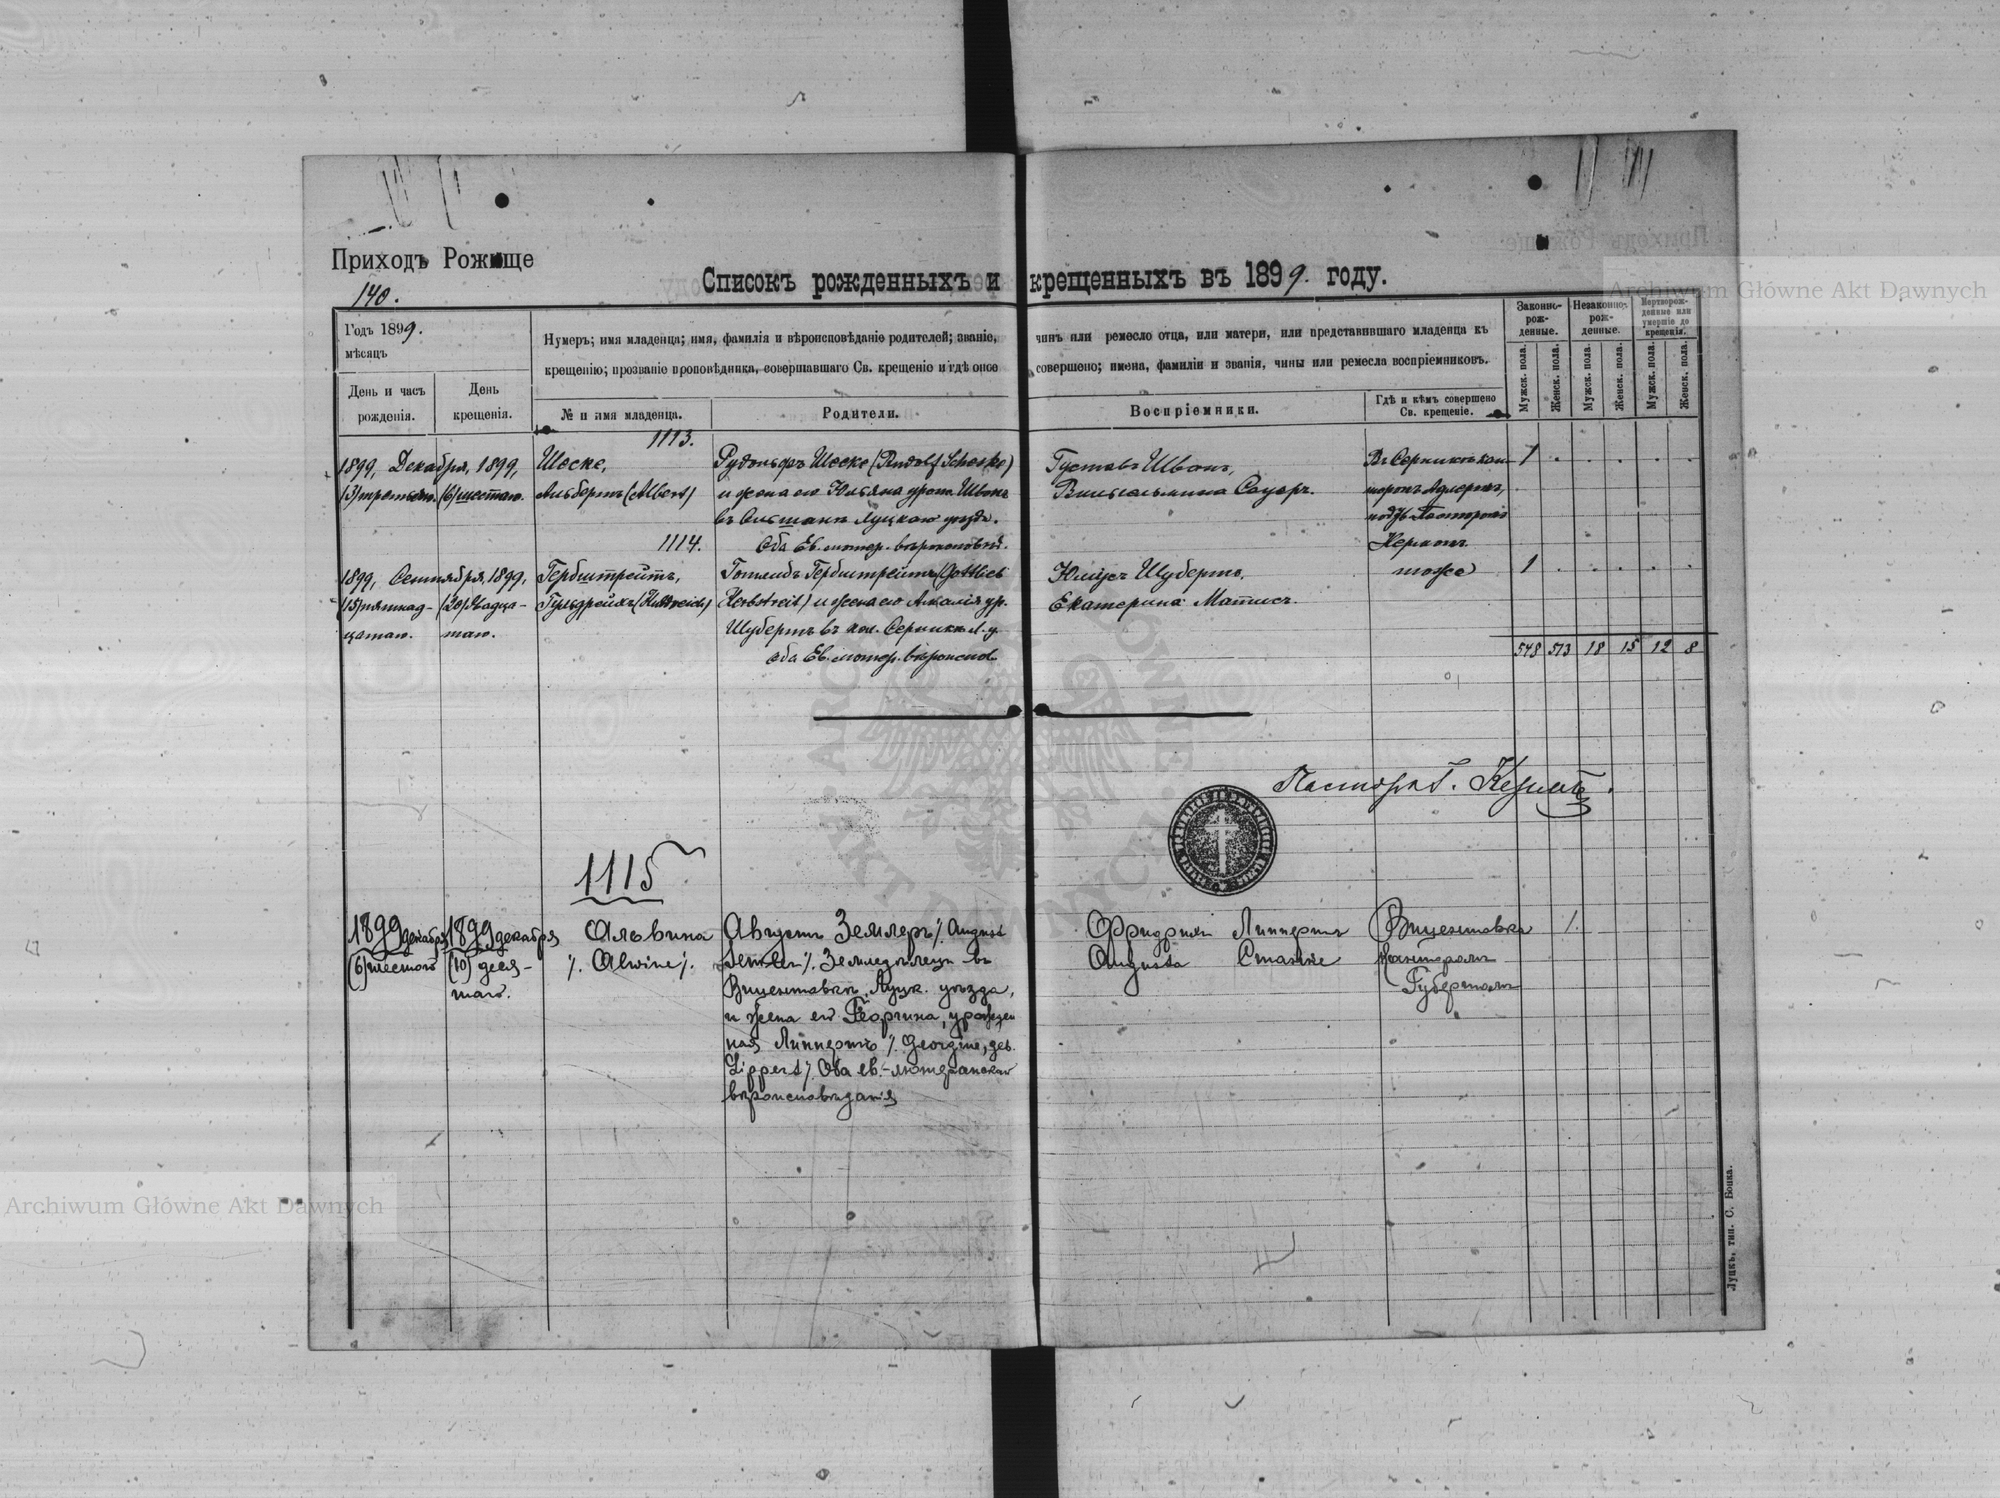 Приходъ Рожище
140.
Списокъ рожденныхъ и крещенныхъ въ 1899. году.
Archiwum Główne Akt Dawnych
Годъ 1899.
мѣсяцъ
День и часъ рожденія.
День крещенія.
Нумеръ; имя младенца; имя, фамилія и вѣроисповѣданіе родителей; званіе, чинъ или ремесло отца, или матери, или представившаго младенца къ
крещенію; прозваніе проповѣдника, совершавшаго Св. крещеніе и гдѣ оное совершено; имена, фамиліи и званія, чины или ремесла воспріемниковъ.
№ и имя младенца.
Родители.
Воспріемники.
Гдѣ и кѣмъ совершено Св. крещеніе.
Законно-рож-денные.
Незаконно-рож-денные.
Мертворож-денные или умершіе до крещенія.
Мужск. пола.
Женск. пола.
Мужск. пола.
Женск. пола.
Мужск. пола.
Женск. пола.
1113.
1899, Декабря, 1899,
(3) третьяго. (6) шестаго.
Шеске,
Альбертъ (Albert)
Рудольфъ Шеске (Rudolf Scheske)
и жена его Юльяна урож. Швонъ
въ Ольшанкѣ Луцкаго уѣзда.
Оба Ев. лютер. вѣроисповѣд.
Густавъ Швонъ,
Вильгельмина Сауеръ.
Въ Серникѣ кан-
торомъ Адлеромъ,
подтв. Пасторомъ
Керномъ.
1
1114.
1899, Сентября, 1899,
(15) пятнад-
цатаго.
(20) двадца-
таго.
Гербштрейтъ,
Гульдрейхъ (Huldreich)
Готлибъ Гербштрейтъ (Gottlieb
Herbstreit) и жена его Амалія ур.
Шубертъ въ кол. Серникѣ Л. у.
оба Ев. лютер. вѣроиспов.
Юліусъ Шубертъ,
Екатерина Матисъ.
тоже
1
548 513 18 15 12 8
Пасторъ Г. Кернъ.
1115
1899 декабря
(6) шестого
1899 декабря
(10) деся-
таго.
Альвина
/. Alwine /.
Августъ Землеръ /. August
Semler /. Земледѣлецъ въ
Вицентовкѣ, Луцк. уѣзда,
и жена его Георгина, урожден
ная Липпертъ /. Georgine, geb.
Lippert /. Оба ев.-лютеранскаго
вѣроисповѣданія
Фридрихъ Липпертъ
Augusta Станке
Вицентовка
Канторомъ
Губертомъ
1.
Луцкъ, тип. С. Бонка.
Archiwum Główne Akt Dawnych